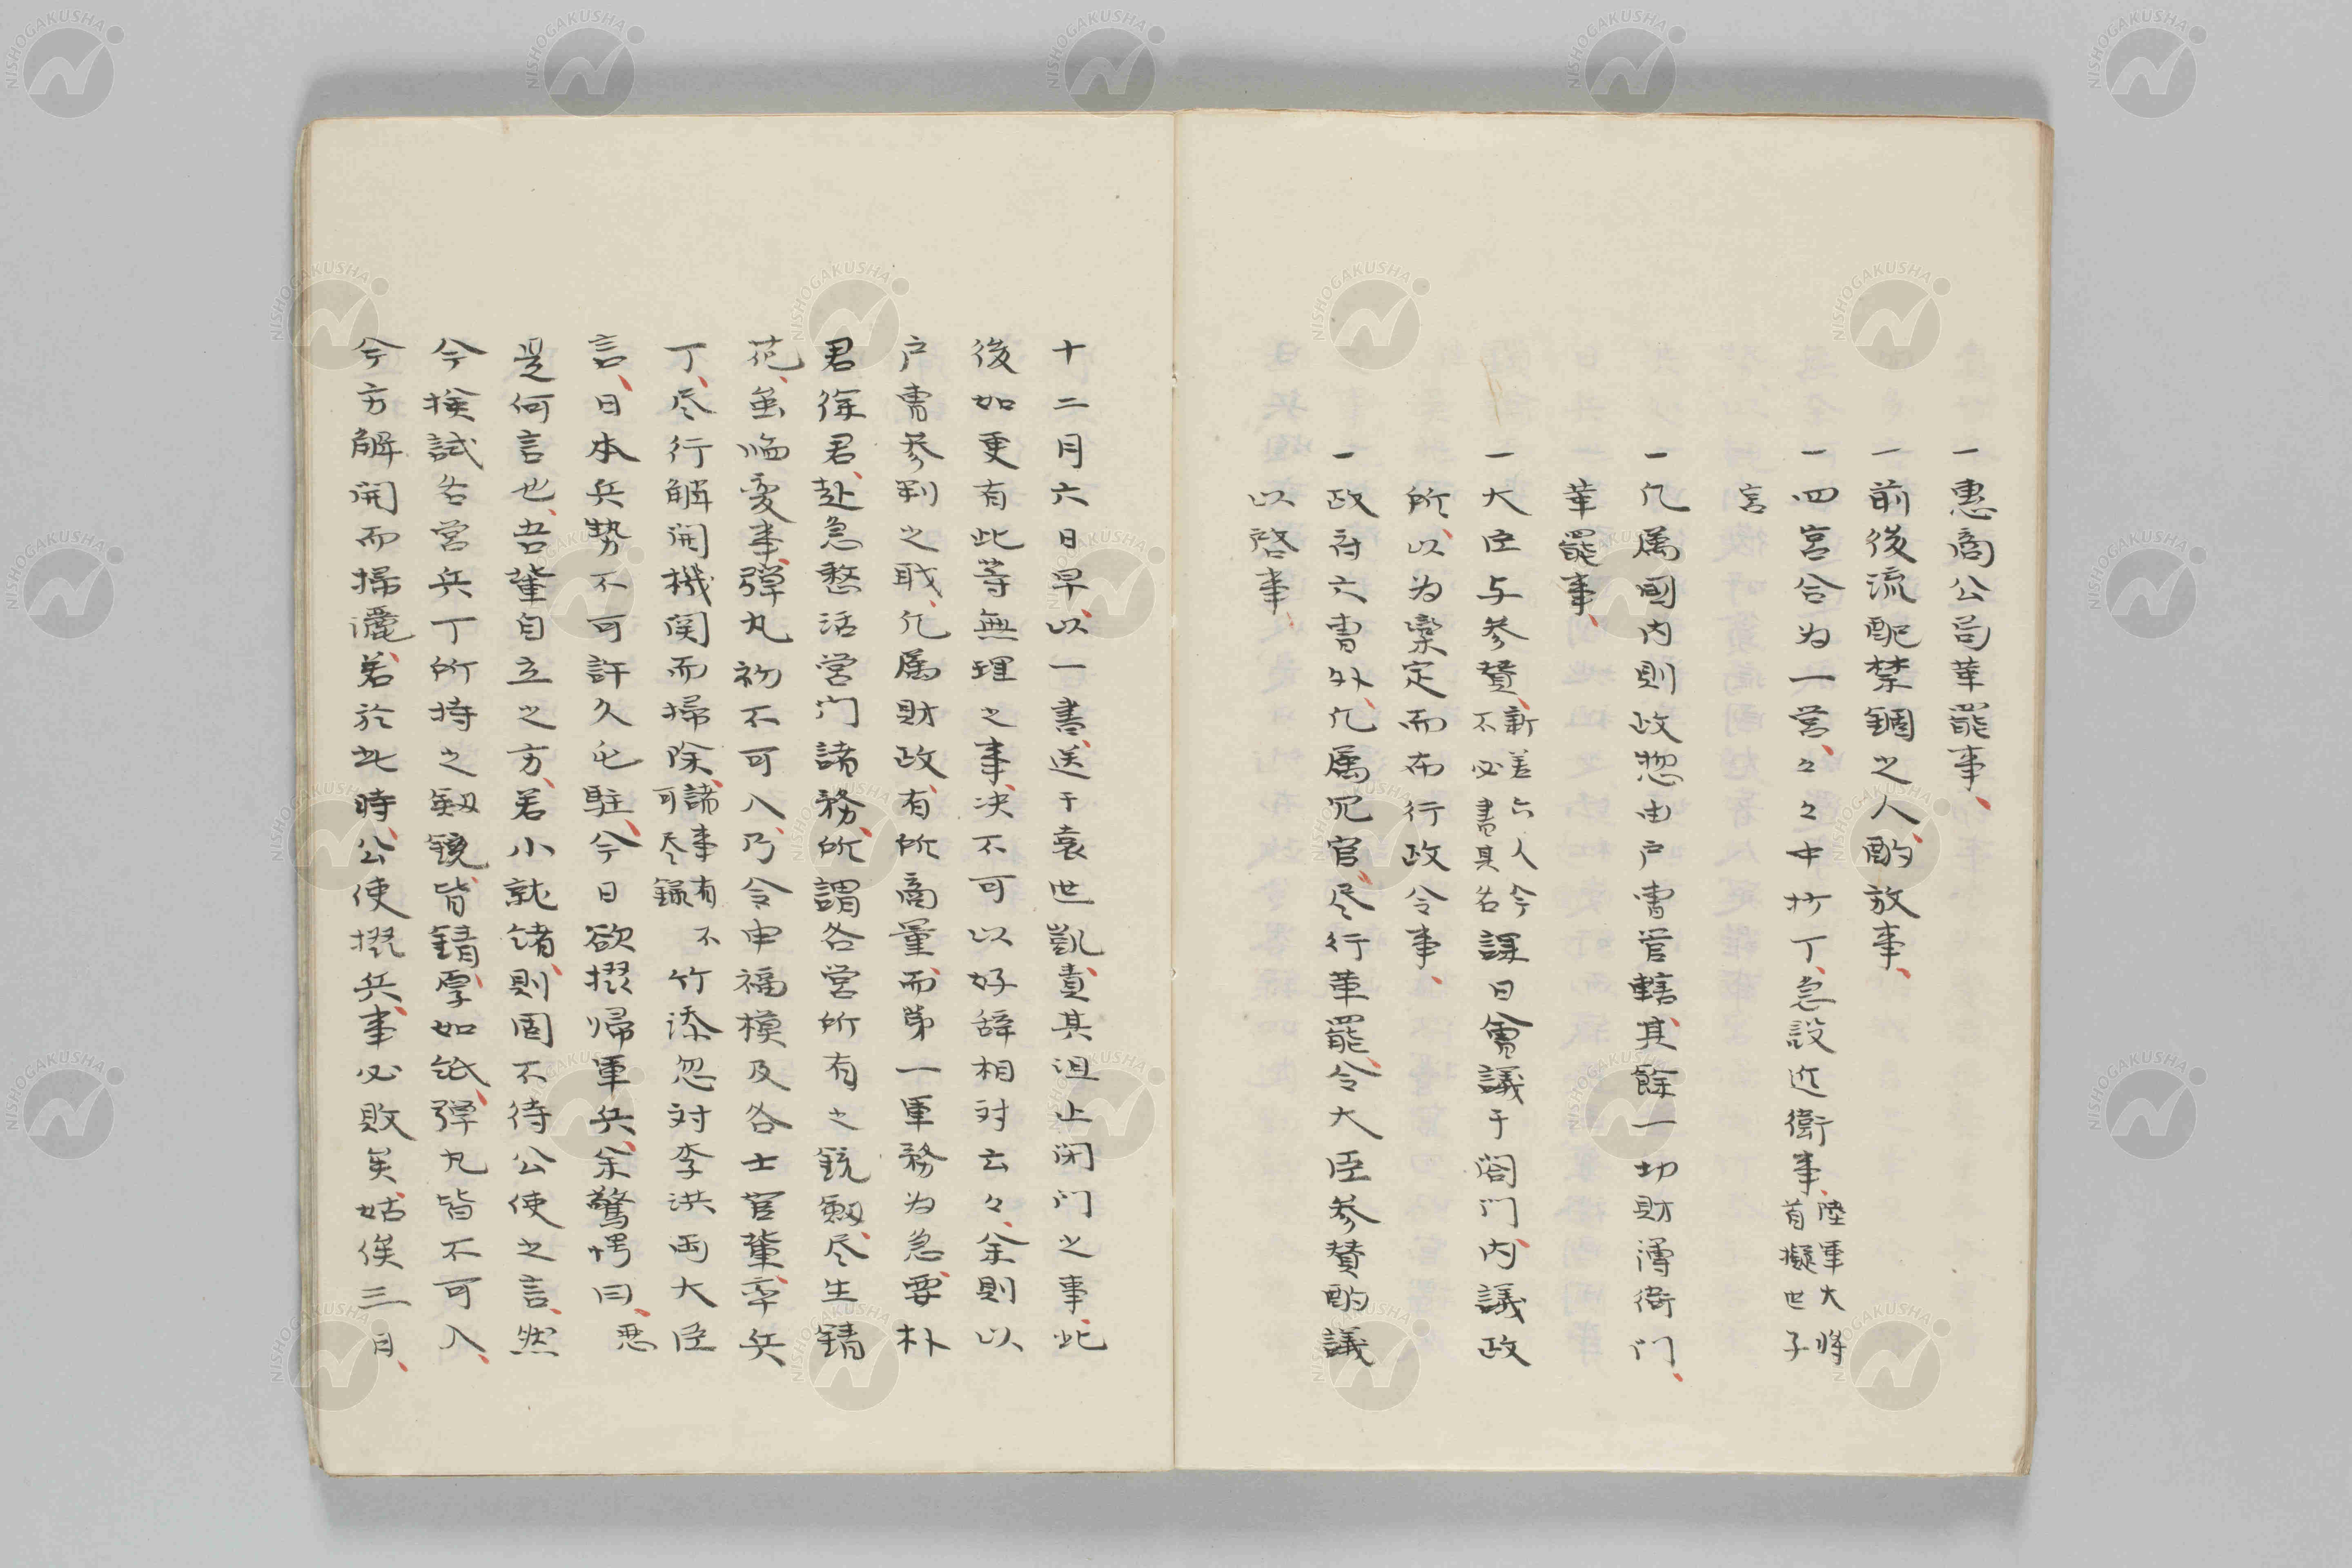 一惠商公司革罷事、
一前後流配禁錮之人、酌放事、
一四営合為一営、々々中抄丁、急設近衛事、陸軍大将首擬世子
宮
一凡属國内則政惣由戸曹管轄、其餘一切財簿衙門、
革罷事、
一大臣与参賛、新差六人今不必書其名課日會議于閤門内、議政
所、以為稟定而布行政令事、
一政府六曹外、凡属冗官、尽行革罷、令大臣参賛酌議
以啓事、
十二月六日早、以一書送于袁世凱、責其沮止閉门之事、此
後如更有此等無理之事、决不可以好辞相対云々、余則以
戸曹参判之職、凡属財政、有所商量、而第一軍務為急、要朴
君徐君、赴急憗活営门諸務、所謂各営所有之銃劔、尽生錆
花、虽臨変事、弾丸初不可入、乃令申福模及各士官輩、率兵
丁、尽行解開機関而掃除、諸事有不可尽録竹添忽対李洪両大臣
言、日本兵勢不可許久屯駐、今日欲掇帰軍兵、余驚愕曰、悪
是何言也、吾輩自立之方、若小就緒、則固不待公使之言、然
今挨試各営兵丁所持之劔銃、皆錆厚如紙、弾丸皆不可入、
今方解開而掃灑、若於此時、公使掇兵、事必敗矣、姑俟三日、